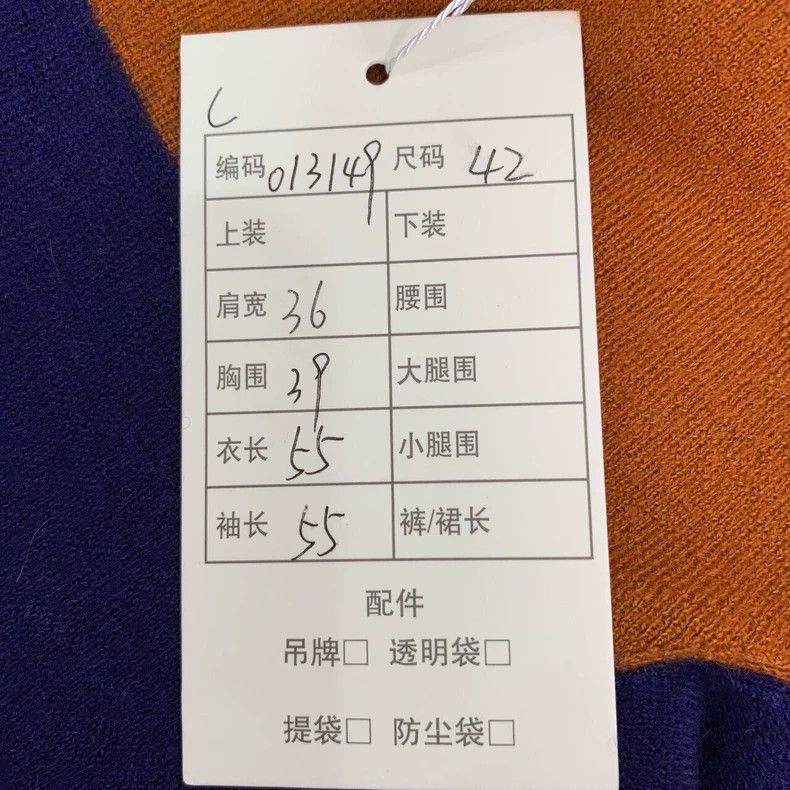 L
编码 013149 尺码 42
上装 下装
肩宽 36 腰围
胸围 39 大腿围
衣长 55 小腿围
袖长 55 裤/裙长
配件
吊牌□ 透明袋□
提袋□ 防尘袋□